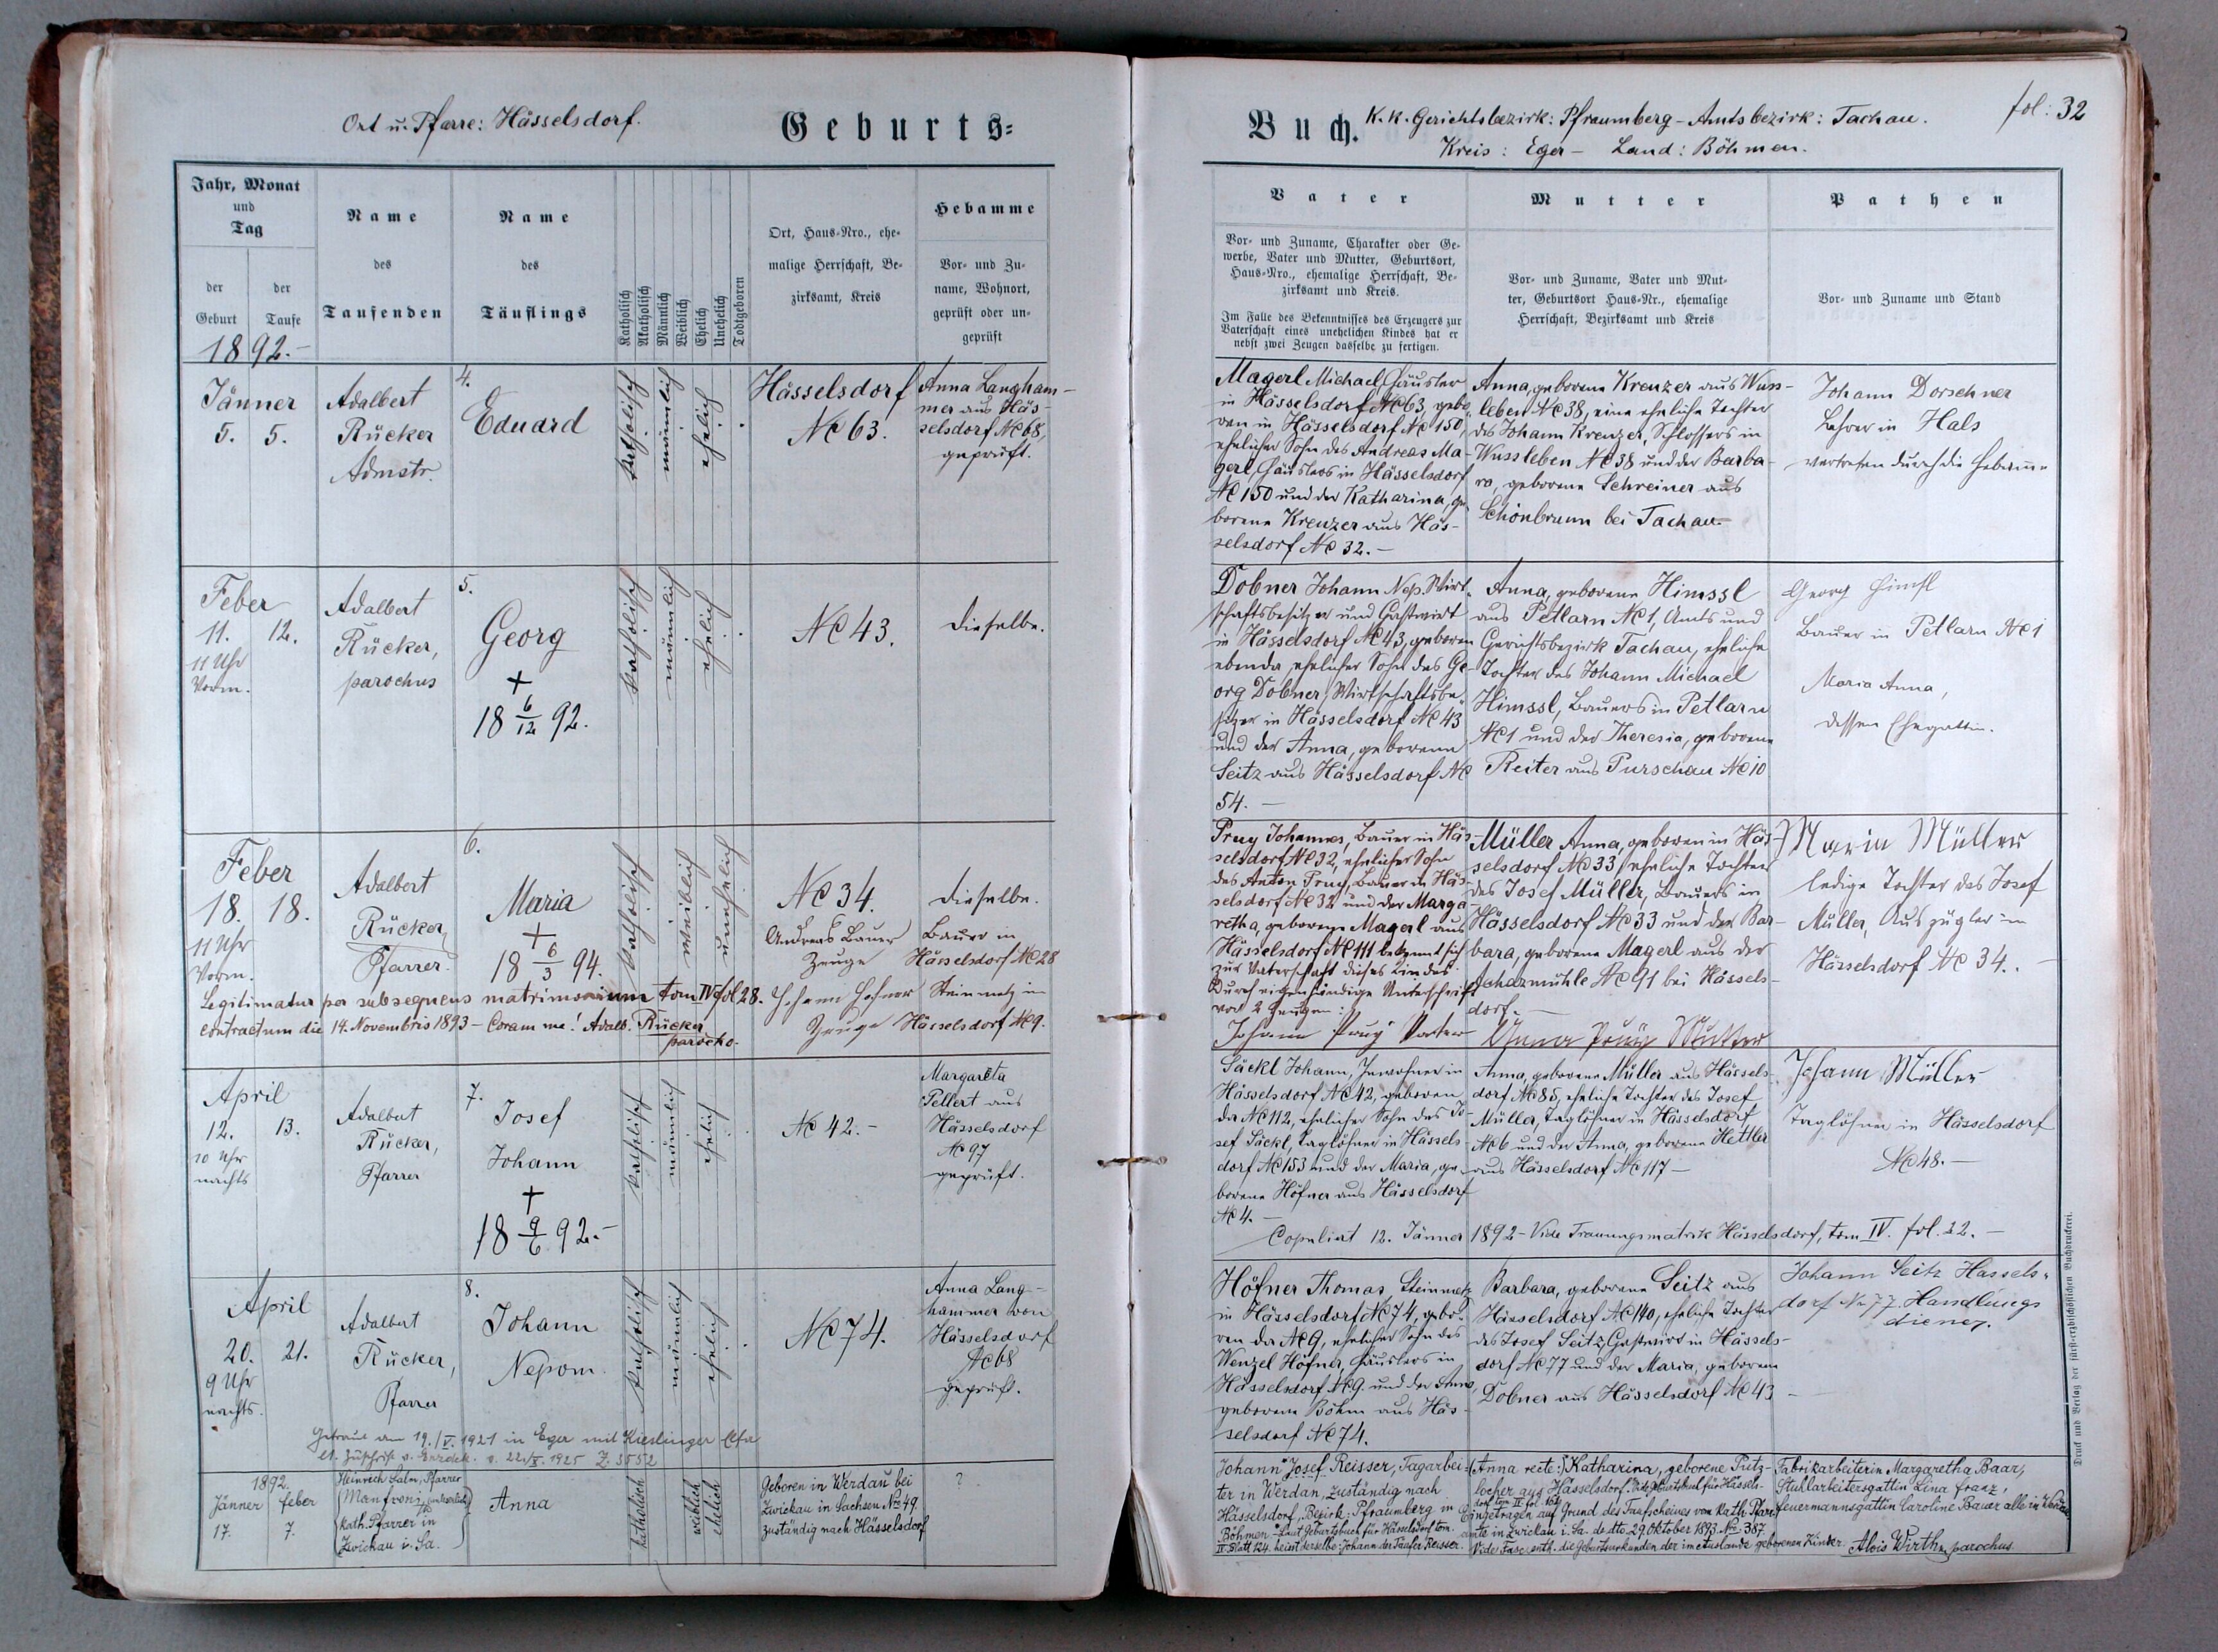 Ort u. Pfarre: Hässelsdorf.
Geburts=
Jahr, Monat
und
Tag
der
Geburt
der
Taufe
1892.-
Name
des
Taufenden
Name
des
Täuflings
Katholisch
Akatholisch
Männlich
Weiblich
Ehelich
Unehelich
Todtgeboren
Ort, Haus-Nro., ehe-
malige Herrschaft, Be-
zirksamt, Kreis
Hebamme
Vor- und Zu-
name, Wohnort,
geprüft oder un-
geprüft
Jänner
5. 5.
Adalbert
Rücker
Admstr.
4.
Eduard
katholisch
männlich
ehelich
Hässelsdorf
№ 63.
Anna Langham-
mer aus Häs-
selsdorf № 68,
geprüft.
Feber
11. 12.
11 Uhr
Vorm.
Adalbert
Rücker,
parochus
5.
Georg
+
18 6/12 92.
katholisch
männlich
ehelich
№ 43.
dieselbe.
Feber
18. 18.
11 Uhr
Vorm.
Adalbert
Rücker,
Pfarrer.
6.
Maria
+
18 6/3 94.
katholisch
weiblich
unehelich
№ 34.
Andreas Bauer
Zeuge
dieselbe.
Bauer in
Hässelsdorf № 28
Legitimatur per subsequens matrimonium tom IV fol 28.
contractum die 14. Novembris 1893 - Coram me! Adalb. Rücker
parocho.
Johann Hofner
Zeuge
Steinmetz in
Hässelsdorf № 9.
April
12. 13.
10 Uhr
nachts
Adalbert
Rücker,
Pfarrer
7.
Josef
Johann
+
18 9/6 92.-
katholisch
männlich
ehelich
№ 42.-
Margareta
Pellert aus
Hässelsdorf
№ 97
geprüft.
April
20. 21.
9 Uhr
nachts.
Adalbert
Rücker,
Pfarrer
8.
Johann
Nepom.
katholisch
männlich
ehelich
№ 74.
Anna Lang-
hammer von
Hässelsdorf
№ 68
geprüft.
Getraut am 19./V. 1921 in Eger mit Kieslinger
lt. Zuschrift v. 1925 Z 3552
1892.
Jänner Feber
17. 7.
Heinrich Salm, Pfarrer
Manfroni
kath. Pfarrer in
Zwickau i. Sa.
Anna
katholisch
weiblich
ehelich
Geboren in Werdau bei
Zwickau in Sachsen No 49.
zuständig nach Hässelsdorf
?
Buch.
K. k. Gerichtsbezirk: Pfraumberg - Amtsbezirk: Tachau.
Kreis: Eger - Land: Böhmen.
fol: 32
Vater
Vor- und Zuname, Charakter oder Ge-
werbe, Vater und Mutter, Geburtsort,
Haus-Nro., ehemalige Herrschaft, Be-
zirksamt und Kreis.
Im Falle des Bekenntnisses des Erzeugers zur
Vaterschaft eines unehelichen Kindes hat er
nebst zwei Zeugen dasselbe zu fertigen.
Mutter
Vor- und Zuname, Vater und Mut-
ter, Geburtsort Haus-Nr., ehemalige
Herrschaft, Bezirksamt und Kreis
Pathen
Vor- und Zuname und Stand
Magerl Michael, Häusler
in Hässelsdorf № 63, gebo-
ren in Hässelsdorf № 150,
ehelicher Sohn des Andreas Ma-
gerl, Häuslers in Hässelsdorf
№ 150 und der Katharina, ge-
borene Kreuzer aus Häs-
selsdorf № 32.-
Anna, geborene Kreuzer aus Wuss-
leben № 38, eine eheliche Tochter
des Johann Kreuzer, Schlossers in
Wussleben № 38 und der Barba-
ra, geborene Schreiner aus
Schönbrunn bei Tachau.-
Johann Dorschner
Lehrer in Hals
vertreten durch die Hebamme
Dobner Johann Nep. Wirt-
schaftsbesitzer und Gastwirt
in Hässelsdorf № 43, geboren
ebenda, ehelicher Sohn des Ge-
org Dobner, Wirtschaftsbe-
sitzer in Hässelsdorf № 43
und der Anna, geborene
Seitz aus Hässelsdorf №
54.-
Anna, geborene Himssl
aus Petlarn № 1, Amts und
Gerichtsbezirk Tachau, eheliche
Tochter des Johann Michael
Himssl, Bauers in Petlarn
№ 1 und der Theresia, geborene
Reiter aus Purschau № 10
Georg Himsl
Bauer in Petlarn № 1
Maria Anna,
dessen Ehegattin.
Pruy Johannes, Bauer in Häs-
selsdorf № 32, ehelicher Sohn
des Anton Pruy, Bauer in Häs-
selsdorf № 32 und der Marga-
retha, geborene Magerl aus
Hässelsdorf № 111 bekennt sich
zur Vaterschaft dieses Kindes
durch eigenhändige Unterschrift
vor 2 Zeugen:
Johann Pruy Vater
Müller Anna, geboren in Häs-
selsdorf № 33, eheliche Tochter
des Josef Müller, Bauers in
Hässelsdorf № 33 und der Bar-
bara, geborene Magerl aus der
№ 91 bei Hässels-
dorf.-
Anna Pruy Mutter
Maria Müller
ledige Tochter des Josef
Müller, Auszügler in
Hässelsdorf № 34.-
Säckl Johann, Inwohner in
Hässelsdorf № 42, geboren
da № 112, ehelicher Sohn des Jo-
sef Säckl, Taglöhner in Hässels-
dorf № 153 und der Maria, ge-
borene Höfner aus Hässelsdorf
№ 4.-
Anna, geborene Müller aus Hässels-
dorf № 85, eheliche Tochter des Josef
Müller, Taglöhner in Hässelsdorf
№ 6 und der Anna, geborene Hettler
aus Hässelsdorf № 117-
Johann Müller
Taglöhner in Hässelsdorf
№ 48.-
Copuliert 12. Jänner 1892 - Vide Trauungsmatrik Hässelsdorf, tom IV. fol. 22.-
Höfner Thomas, Steinmetz
in Hässelsdorf № 74, gebo-
ren da № 9, ehelicher Sohn des
Wenzel Höfner, Häuslers in
Hässelsdorf № 9. und der Anna,
geborene Böhm aus Häs-
selsdorf № 74.
Barbara, geborene Seitz aus
Hässelsdorf № 140, eheliche Tochter
des Josef Seitz, Gastwirt in Hässels-
dorf № 77 und der Maria, geborene
Dobner aus Hässelsdorf № 43-
Johann Seitz Hassels-
dorf Nr 77. Handlungs
diener.
Johann Josef Reisser, Tagarbei-
ter in Werdau, zuständig nach
Hässelsdorf, Bezirk: Pfraumberg in
Böhmen. Laut Geburtsbuch für Hässelsdorf tom.
II. Blatt 124. heisst derselbe: Johann der Täufer Reisser.
(Anna recte:) Katharina, geborene Putz-
locher aus Hässelsdorf. Vide Geburtsbuch für Hässels-
dorf tom II fol. 164
Eingetragen auf Grund des Taufscheines vom kath. Pfarr-
amte in Zwickau i. Sa. de dto 29. Oktober 1893. No 387.
Vide: Fasc. enth. die Geburtsurkunden der im Auslande geborenen Kinder.
Fabrikarbeiterin Margaretha Baar,
Stuhlarbeitersgattin Lina Franz,
Feuermannsgattin Caroline Bauer alle in
Alois Wirth, parochus
Druck und Verlag der fürst-erzbischöflichen Buchdruckerei.